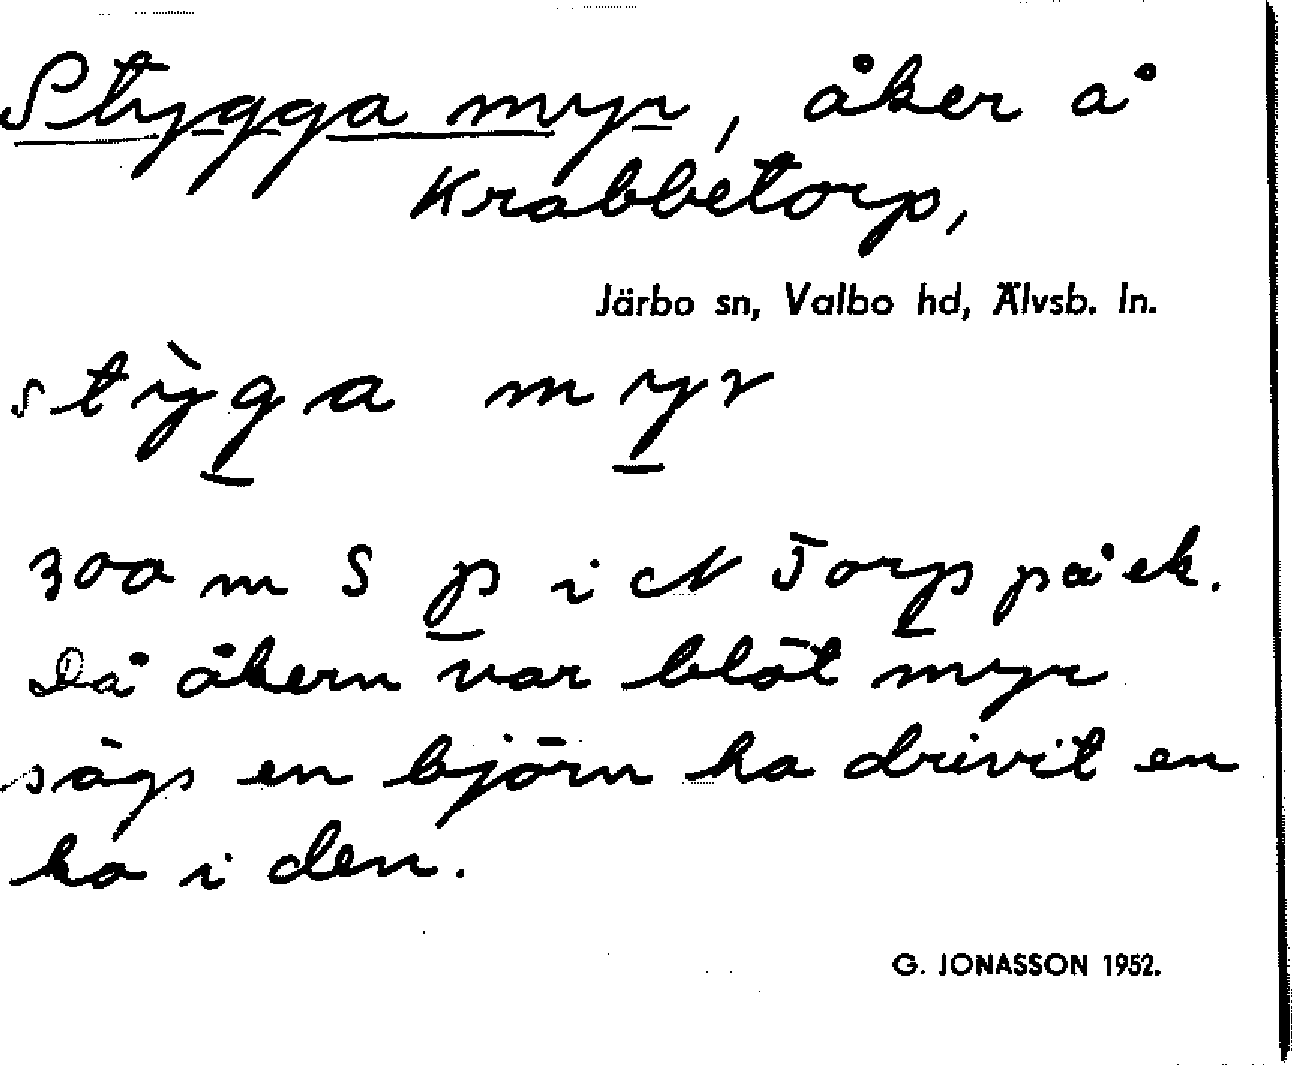 Stygga myr, åker å
Krabbetorp,
Järbo sn, Valbo hd, Älvsb. ln.
stỳga myr
300 m S p i N Torp på ek.
Då åkern var blöt myr
sägs en björn ha drivit en
ko i den.
G. JONASSON 1952.